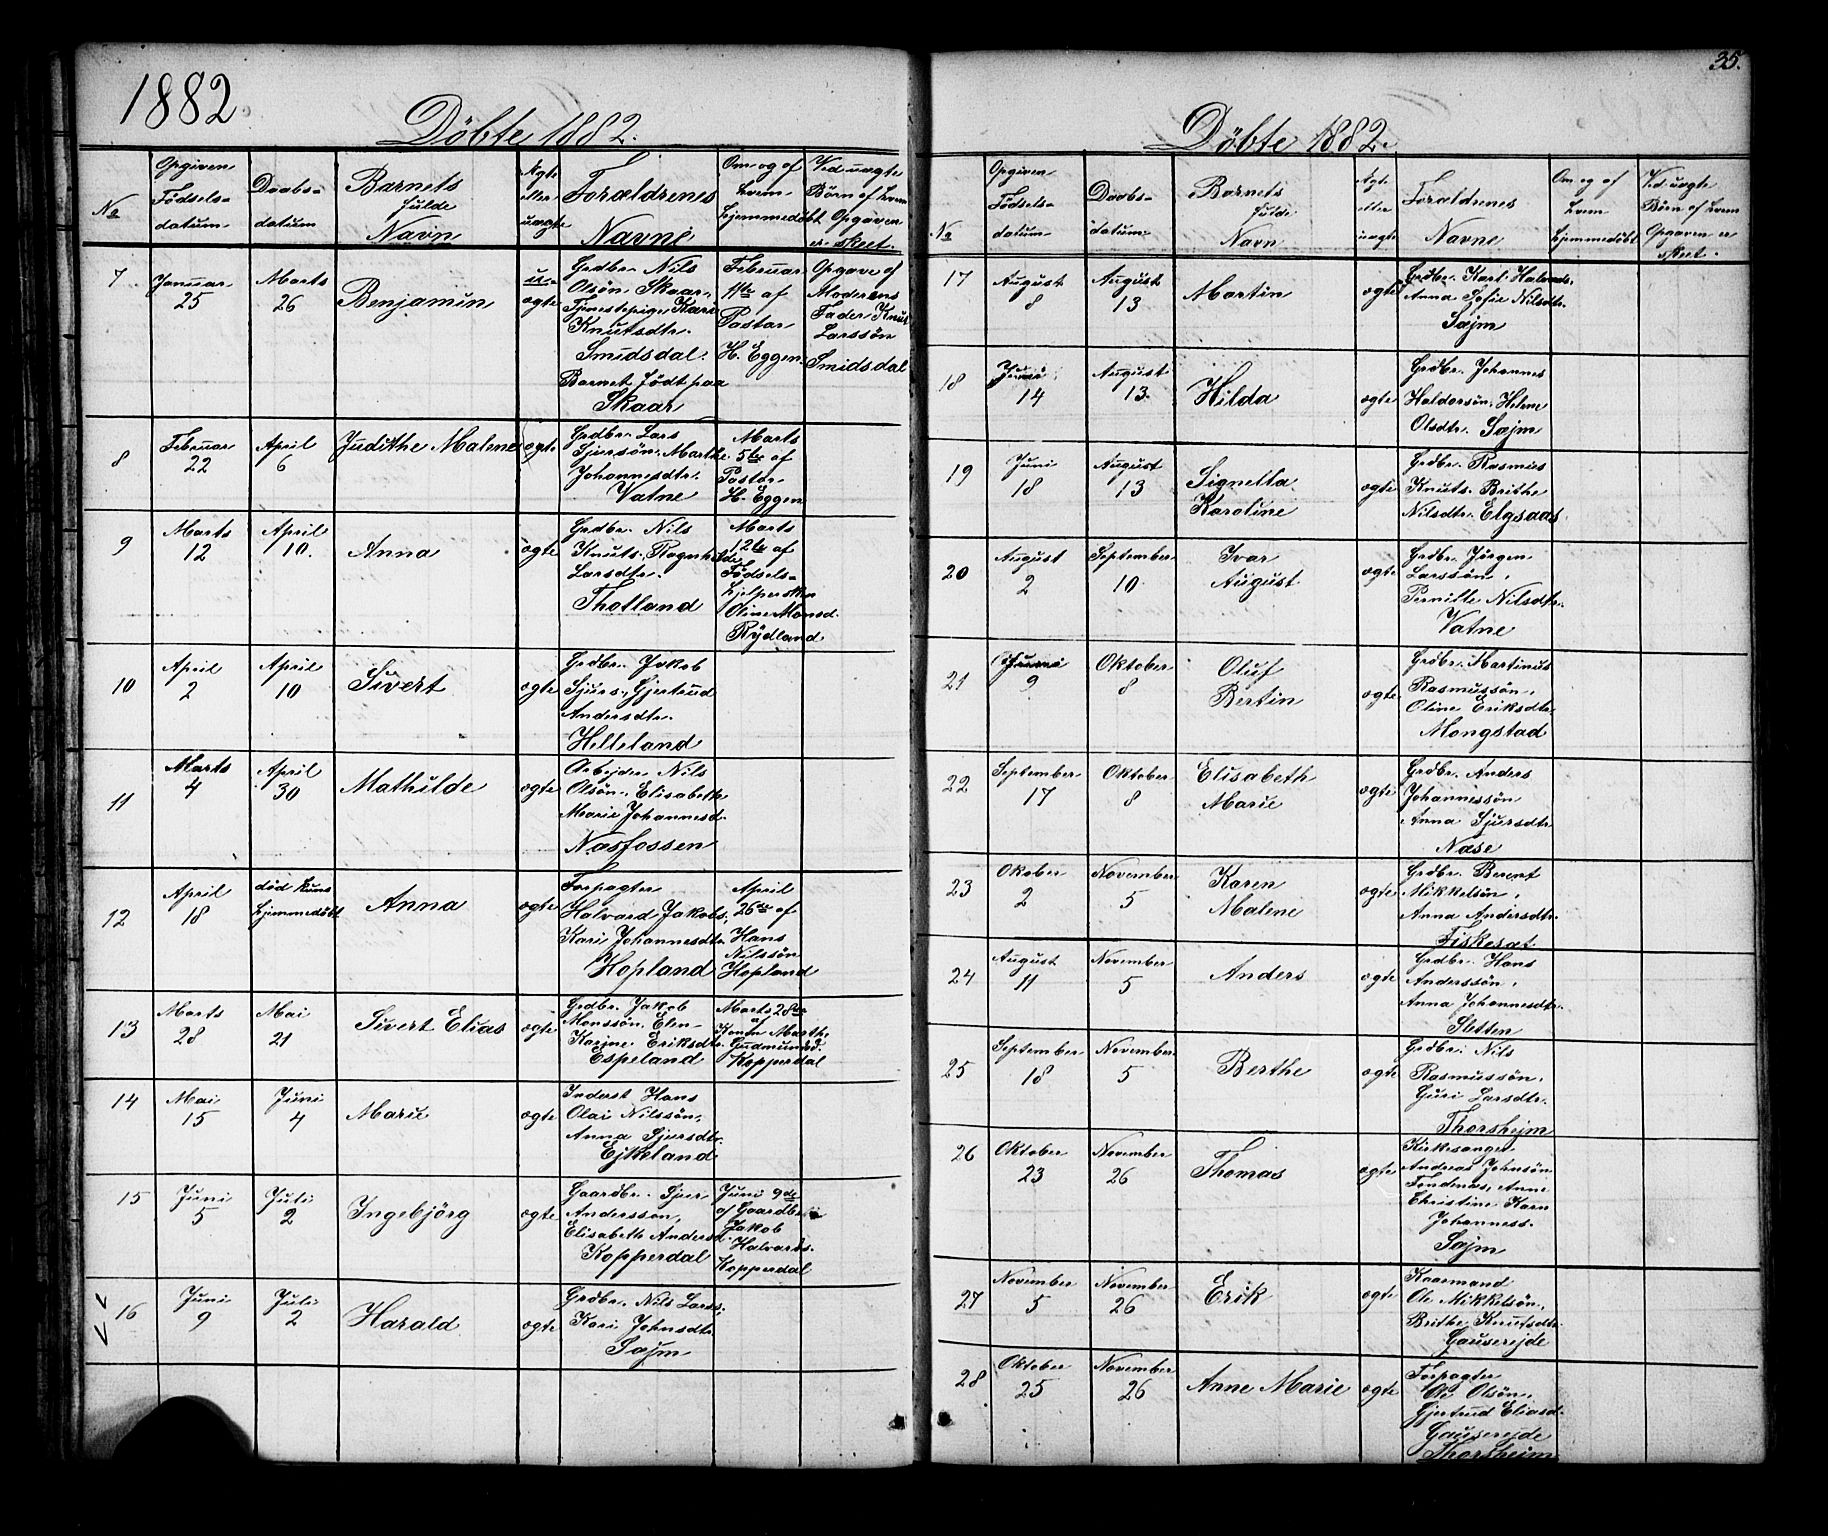 1882.
Döbte 1882.
No
Opgiven
Födsels-
datum
Daabs-
datum
Barnets
fulde
Navn
Ægte
eller
uægte
Forældrenes
Navne
Om og af
hvem
hjemmedöbt
Ved uægte
Börn af hvem
Opgaven
er skeet.
7
Januar
25
Marts
26
Benjamin
u-
ægte
Grdbr. Nils
Olsön Skaar,
Tjenestepige Kari
Knutsdtr.
Smidsdal.
Barnet födt paa
Skaar
Februar
11te af
Pastor
H. Eggen.
Opgave af
Moderens
Fader Knut
Larssön
Smidsdal
8
Februar
22
April
6
Judithe Malene
ægte
Grdbr. Lars
Sjursön, Marthe
Johannesdtr.
Vatne
Marts
5te af
Pastor
H. Eggen
9
Marts
12
April
10.
Anna
ægte
Grdbr. Nils
Knuts. Ragnhilde
Larsdtr.
Thotland
Marts
12te af
Födsels-
hjelpersken
Oline Monsd.
Rÿdland
10
April
2
April
10
Sivert
ægte
Grdbr. Jakob
Sjurs., Gjertrud
Andersdtr.
Helleland
11
Marts
4
April
30
Mathilde
ægte
Arbejder Nils
Olsön, Elisabeth
Marie Johannesd.
Næsfossen
12
April
18
död kuns
hjemmedöbt
Anna
ægte
Forpagter
Halvard Jakobs,
Kari Johannesdtr.
Hopland
April
26de af
Hans
Nilssön
Hopland
13
Marts
28
Mai
21
Sivert Elias
ægte
Grdbr. Jakob
Monssön, Elen
Karine Eriksdtr.
Espeland
Marts 28de
af
Konen Marthe
Gudmundsd.
Kopperdal
14
Mai
15
Juni
4
Marie
ægte
Inderst Hans
Olai Nilssön,
Anna Sjursdtr.
Ejkeland
15
Juni
5
Juli
2
Ingebjörg
ægte
Gaardbr. Sjur
Anderssön,
Elisabeth Andersd.
Kopperdal
Juni 9de
af Gaardbr.
Jakob
Halvards.
Kopperdal
16
Juni
9
Juli
2
Harald
ægte
Grdbr. Nils Larss,
Kari Johnsdtr.
Sæjm
35.
Döbte 1882.
No
Opgiven
Födsels-
datum
Daabs-
datum
Barnets
fulde
Navn
Ægte
eller
uægte
Forældrenes
Navne
Om og af
hvem
hjemmedöbt
Ved uægte
Börn af hvem
Opgaven er
skeet.
17
August
8
August
13
Martin
ægte
Grdbr. Karl Halvards.
Anna Sofie Nilsdtr.
Sæjm
18
14
August
13.
Hilda
ægte
Grdbr. Johannes
Haldorsön, Helene
Olsdtr. Sæjm
19
Juni
18
August
13
Signella
Karoline
ægte
Grdbr. Rasmus
Knuts. Brithe
Nilsdtr. Elgsaas
20
August
2
September
10
Ivar
August
ægte
Grdbr. Jörgen
Larssön,
Pernille Nilsdtr.
Vatne
21
9
Oktober
8
Oluf
Bertin
ægte
Grdbr. Martinus
Rasmussön,
Oline Eriksdtr.
Mongstad
22
September
17
Oktober
8
Elisabeth
Marie
ægte
Grdbr. Anders
Johannessön
Anna Sjursdtr.
Næse
23
Okober
2
November
5
Karen
Malene
ægte
Grdbr. Berent
Mikkelsön,
Anna Andersdtr.
Fiskesæt
24
August
11
November
5
Anders
ægte
Grdbr. Hans
Anderssön,
Anna Johannesdtr.
Sletten
25
September
18
November
5
Berthe
ægte
Grdbr. Nils
Rasmussön,
Guri Larsdtr.
Thorshejm
26
Oktober
23
November
26
Thomas
ægte
Kirkesanger
Andreas Johnsön
Tondenæs, Anne
Christine Karn
Johanness.
Sæjm
27
November
5
November
26
Erik
ægte
Kaarmand
Ole Mikkelsön,
Brithe Knutsdtr.
Gauserejde
28
Oktober
25
November
26
Anne Marie
ægte
Forpagter
Ole Olsön,
Gjertrud Eliasd.
Gauserejde
Thorsheim